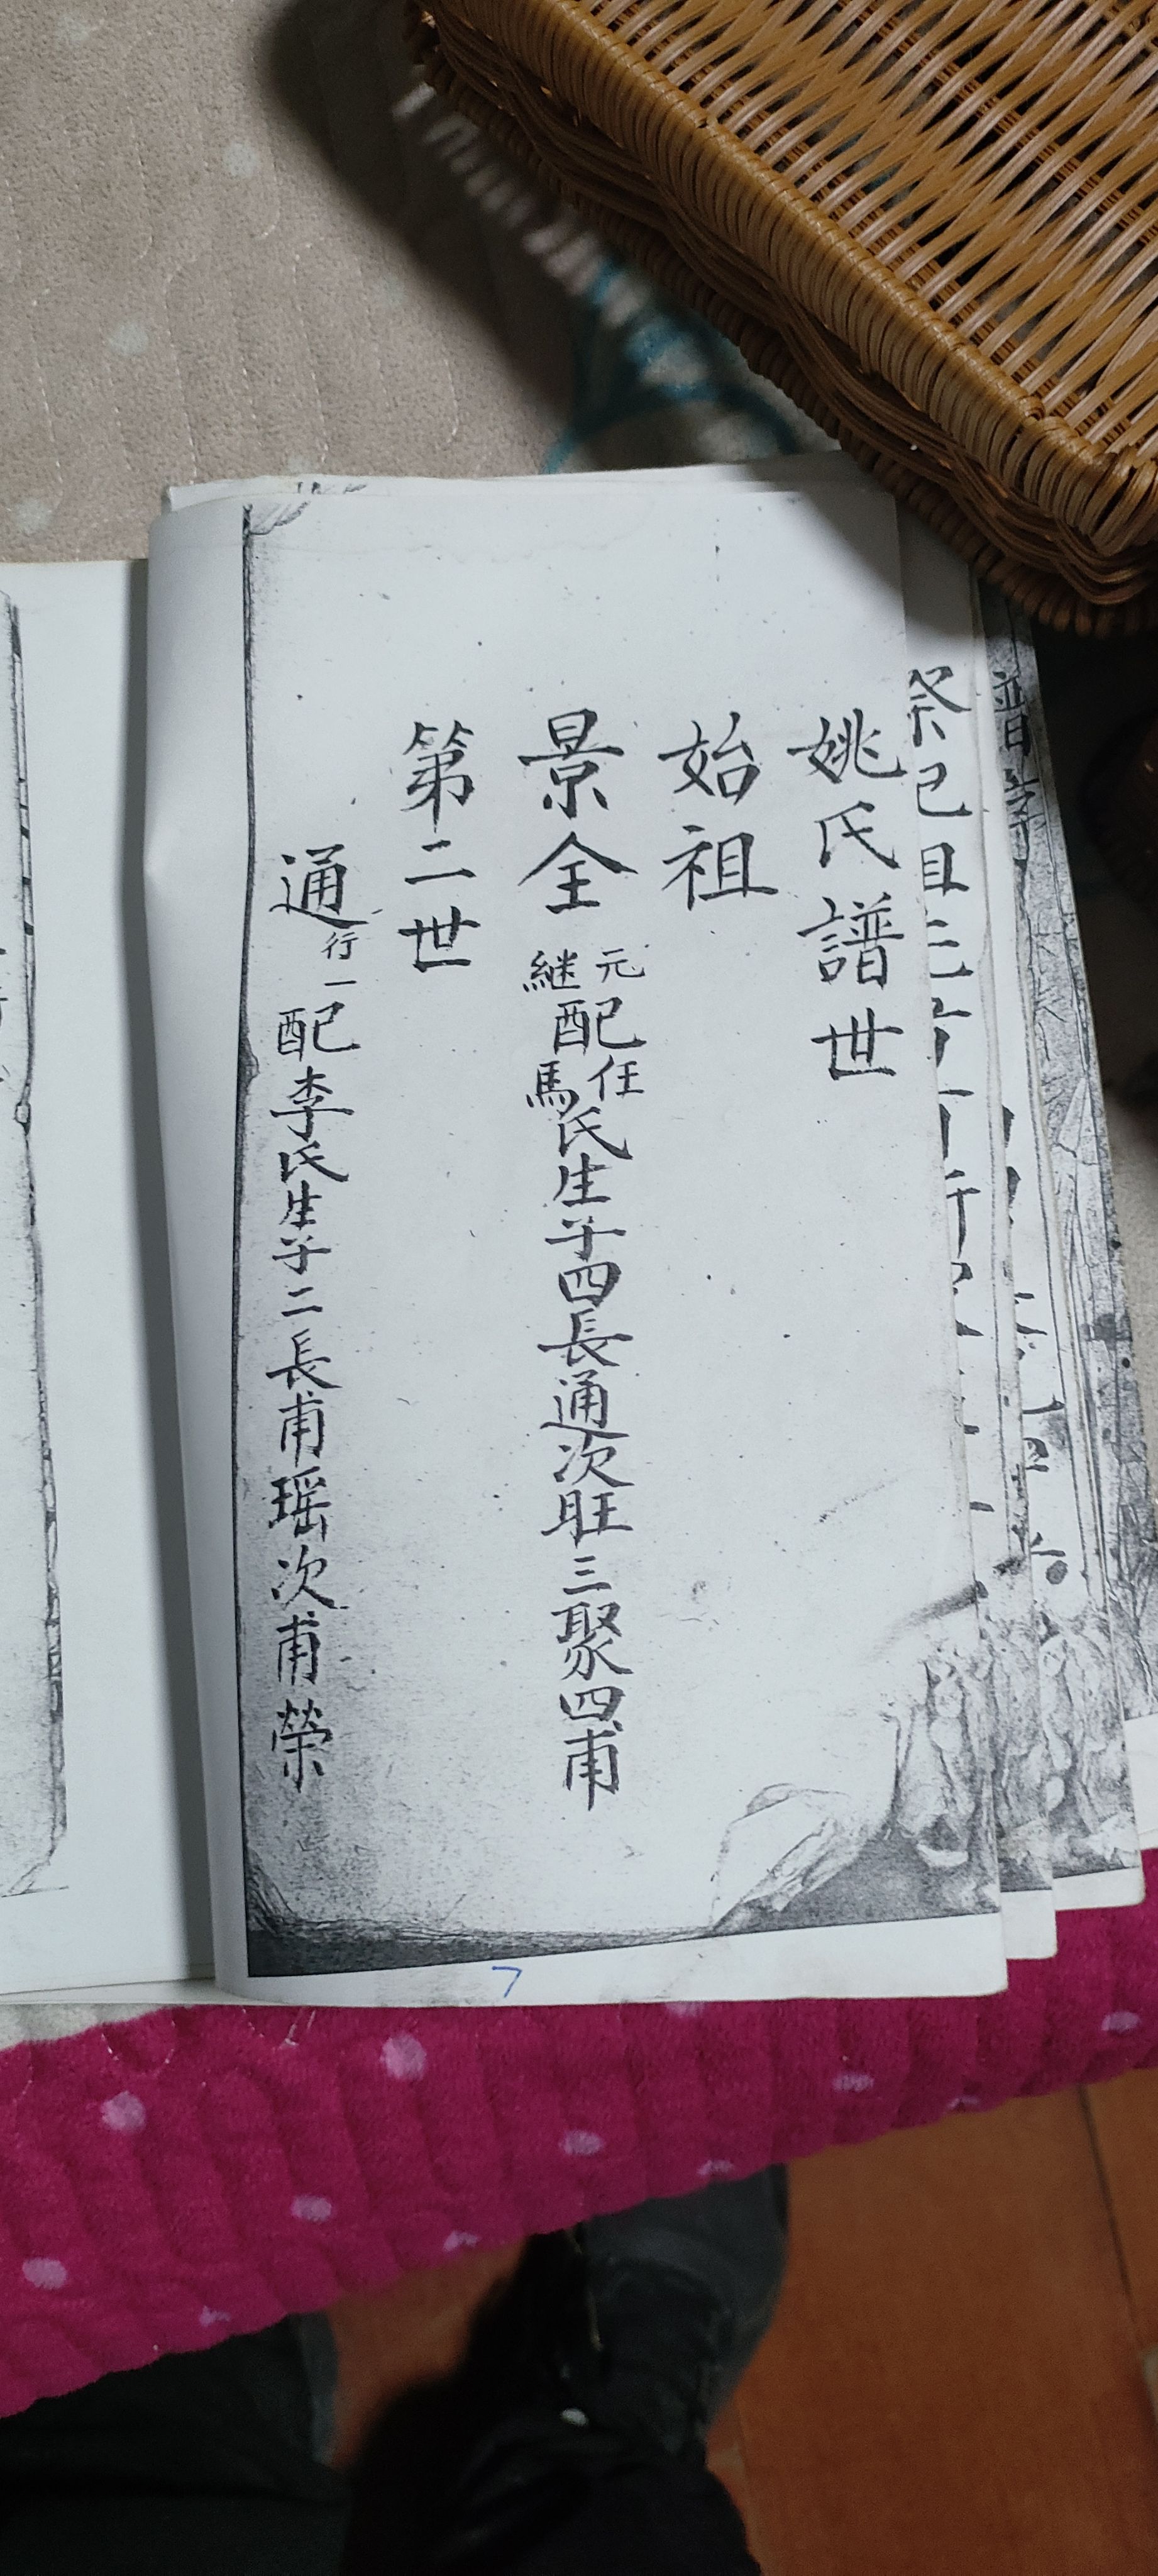 姚氏譜世
始祖
景全 元繼配任馬氏生子四長通次旺三聚四甫
第二世
通行一配李氏生子二長甫瑶次甫榮
7